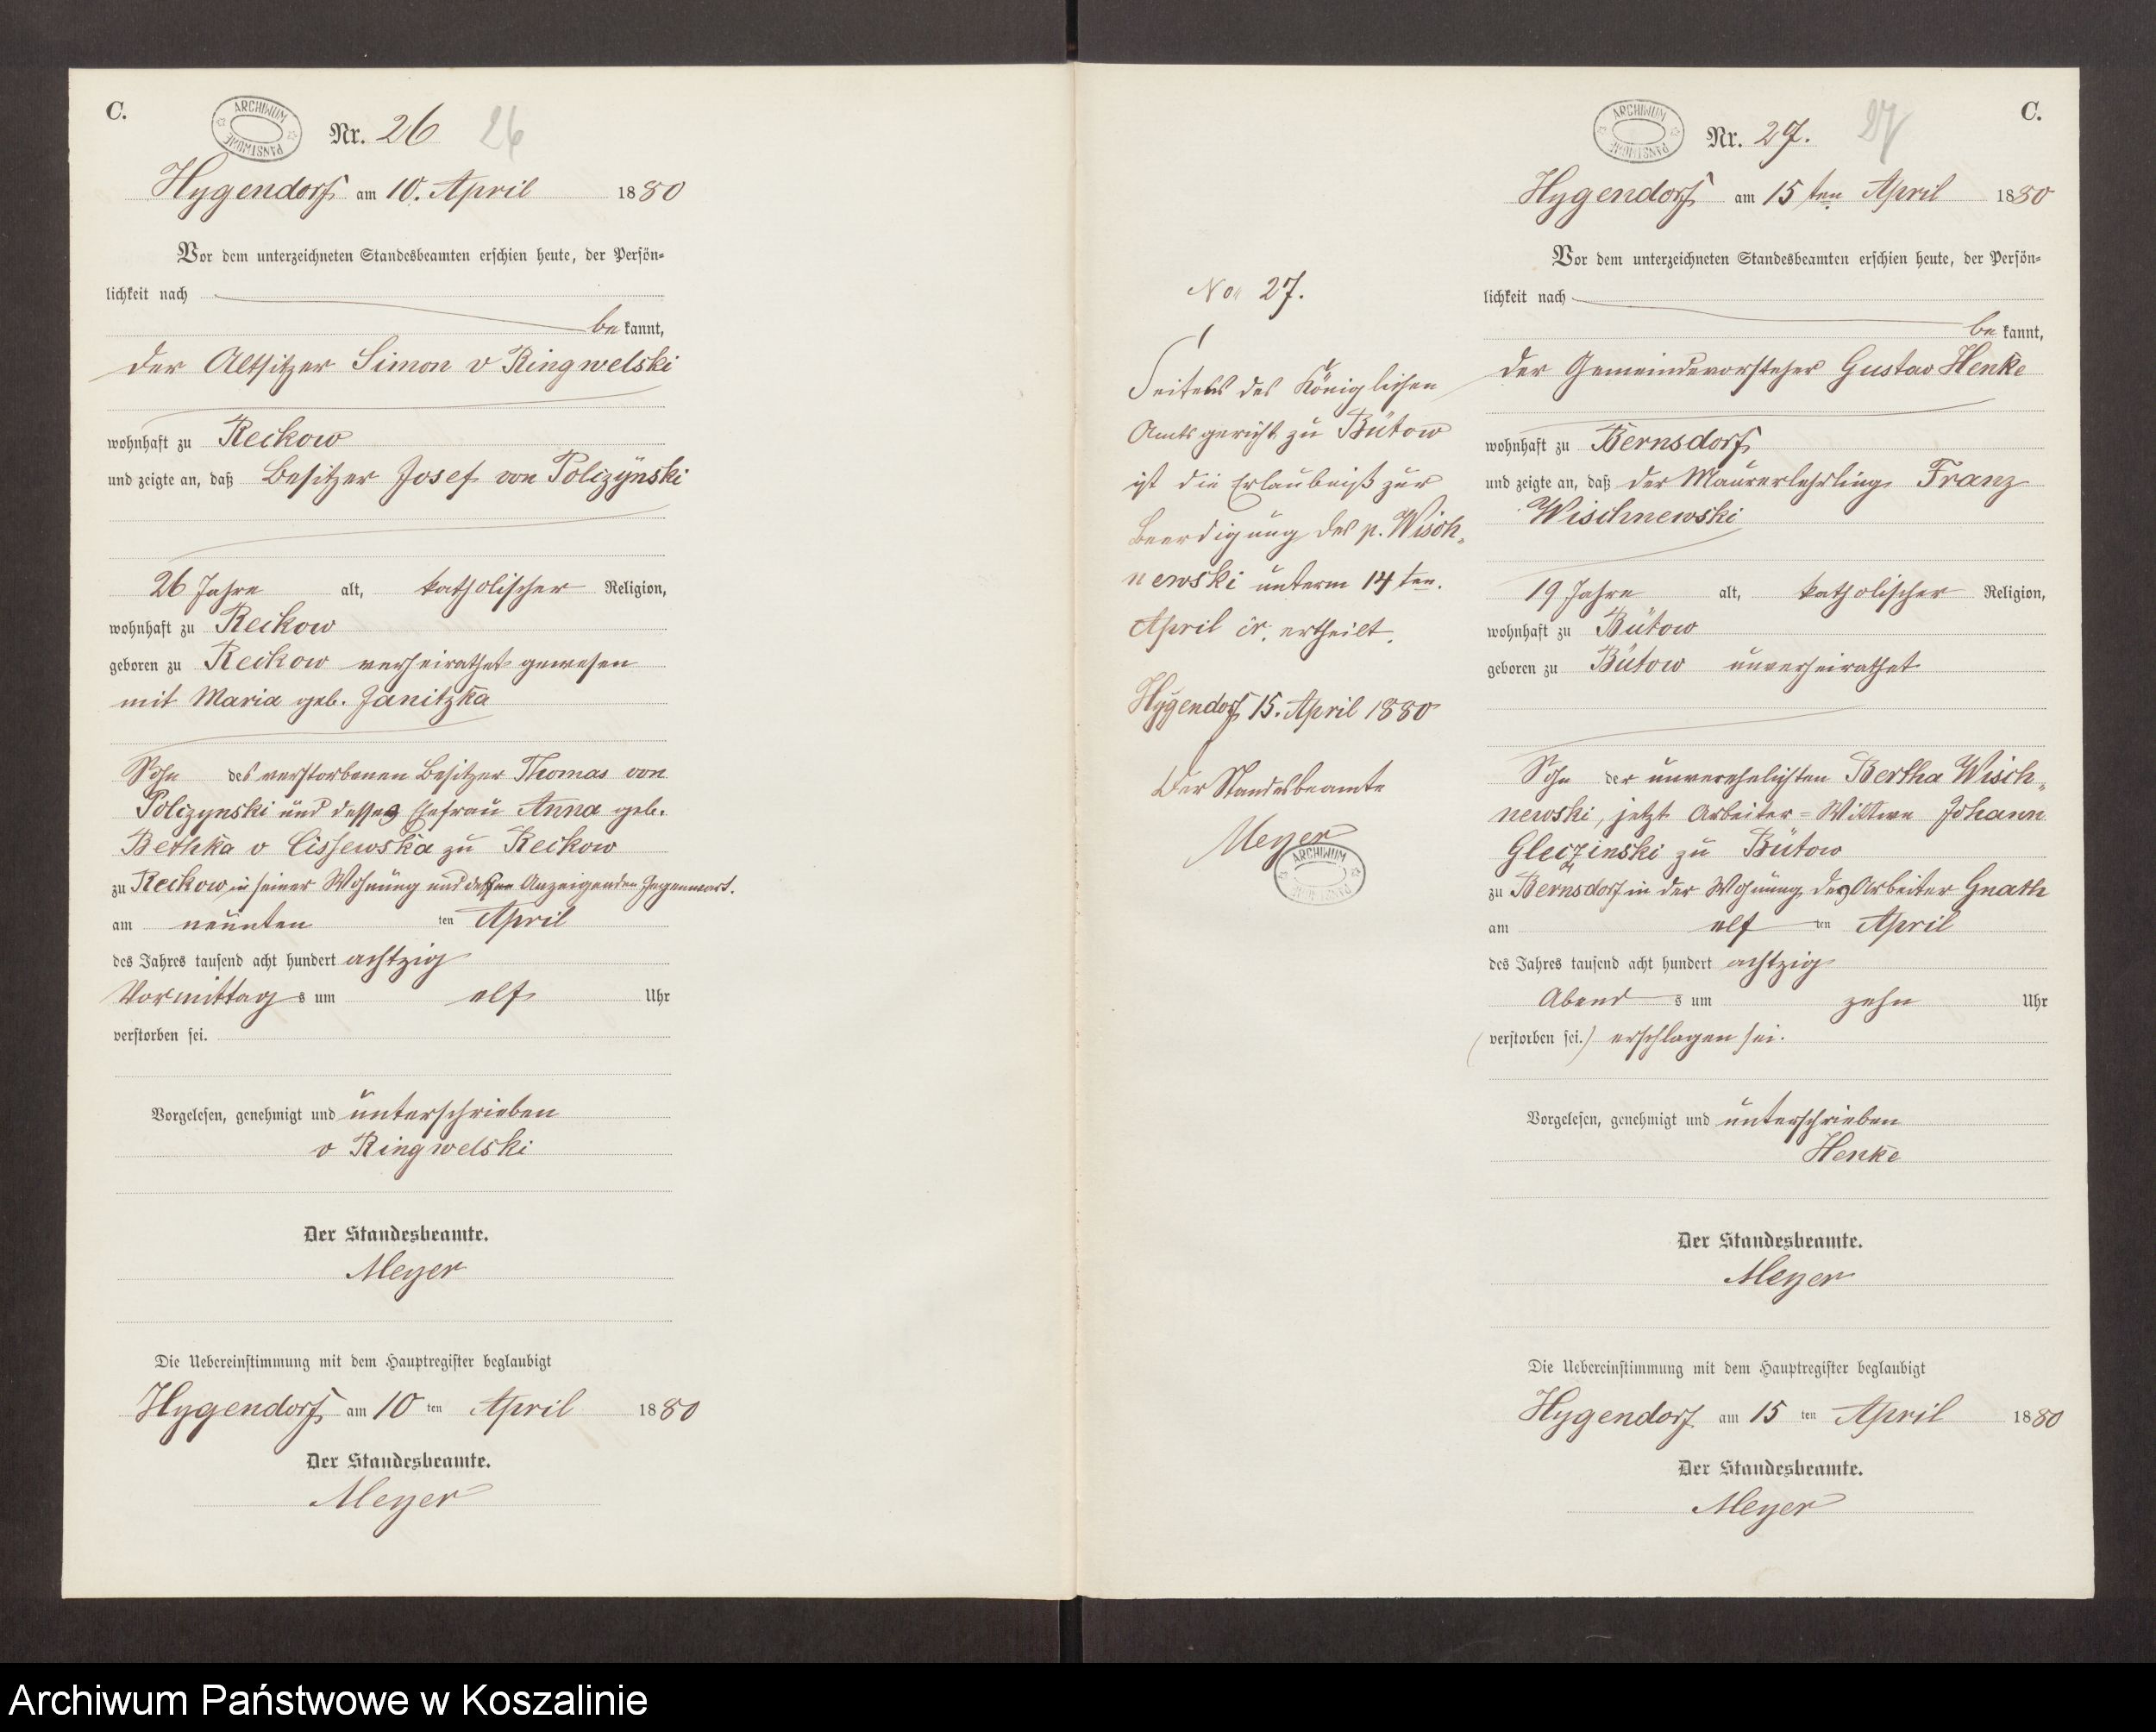 C.
ARCHIWUM PAŃSTWOWE
Nr. 26 26
Hygendorf am 10. April 1880
Vor dem unterzeichneten Standesbeamten erschien heute, der Persön-
lichkeit nach
be kannt,
der Altsitzer Simon v Ringwelski
wohnhaft zu Reckow
und zeigte an, daß Besitzer Josef von Polczÿnski
26 Jahre alt, katholischer Religion,
wohnhaft zu Reckow
geboren zu Reckow verheirathet gewesen
mit Maria geb. Janitzka
Sohn des verstorbenen Besitzer Thomas von
Polczynski und dessen Ehefrau Anna geb.
Bethka v Cissewska zu Reckow
zu Reckow in seiner Wohnung und dessen Anzeigenden Gegenwart.
am neunten ten April
des Jahres tausend acht hundert achtzig
Vormittag s um elf Uhr
verstorben sei.
Vorgelesen, genehmigt und unterschrieben
v Ringwelski
Der Standesbeamte.
Meyer
Die Uebereinstimmung mit dem Hauptregister beglaubigt
Hygendorf am 10 ten April 1880
Der Standesbeamte.
Meyer
No 27.
Seitens des Königlichen
Amtsgericht zu Bütow
ist die Erlaubniß zur
Beerdigung des p. Wisch-
newski unterm 14 ten.
April cr. ertheilt.
Hygendorf 15. April 1880
Der Standesbeamte
Meyer
ARCHIWUM PAŃSTWOWE
C.
ARCHIWUM PAŃSTWOWE
Nr. 27. 27
Hygendorf am 15 ten April 1880
Vor dem unterzeichneten Standesbeamten erschien heute, der Persön-
lichkeit nach
be kannt,
der Gemeindevorsteher Gustav Henke
wohnhaft zu Bernsdorf
und zeigte an, daß der Maurerlehrling Franz
Wischnewski
19 Jahre alt, katholischer Religion,
wohnhaft zu Bütow
geboren zu Bütow unverheirathet
Sohn der unverehelichten Bertha Wisch-
newski, jetzt Arbeiter-Wittwe Johann
Gleczinski zu Bütow
zu Bernsdorf in der Wohnung des Arbeiter Gnath
am elf ten April
des Jahres tausend acht hundert achtzig
Abend s um zehn Uhr
(verstorben sei.) erschlagen sei.
Vorgelesen, genehmigt und unterschrieben
Henke
Der Standesbeamte.
Meyer
Die Uebereinstimmung mit dem Hauptregister beglaubigt
Hygendorf am 15 ten April 1880
Der Standesbeamte.
Meyer
Archiwum Państwowe w Koszalinie